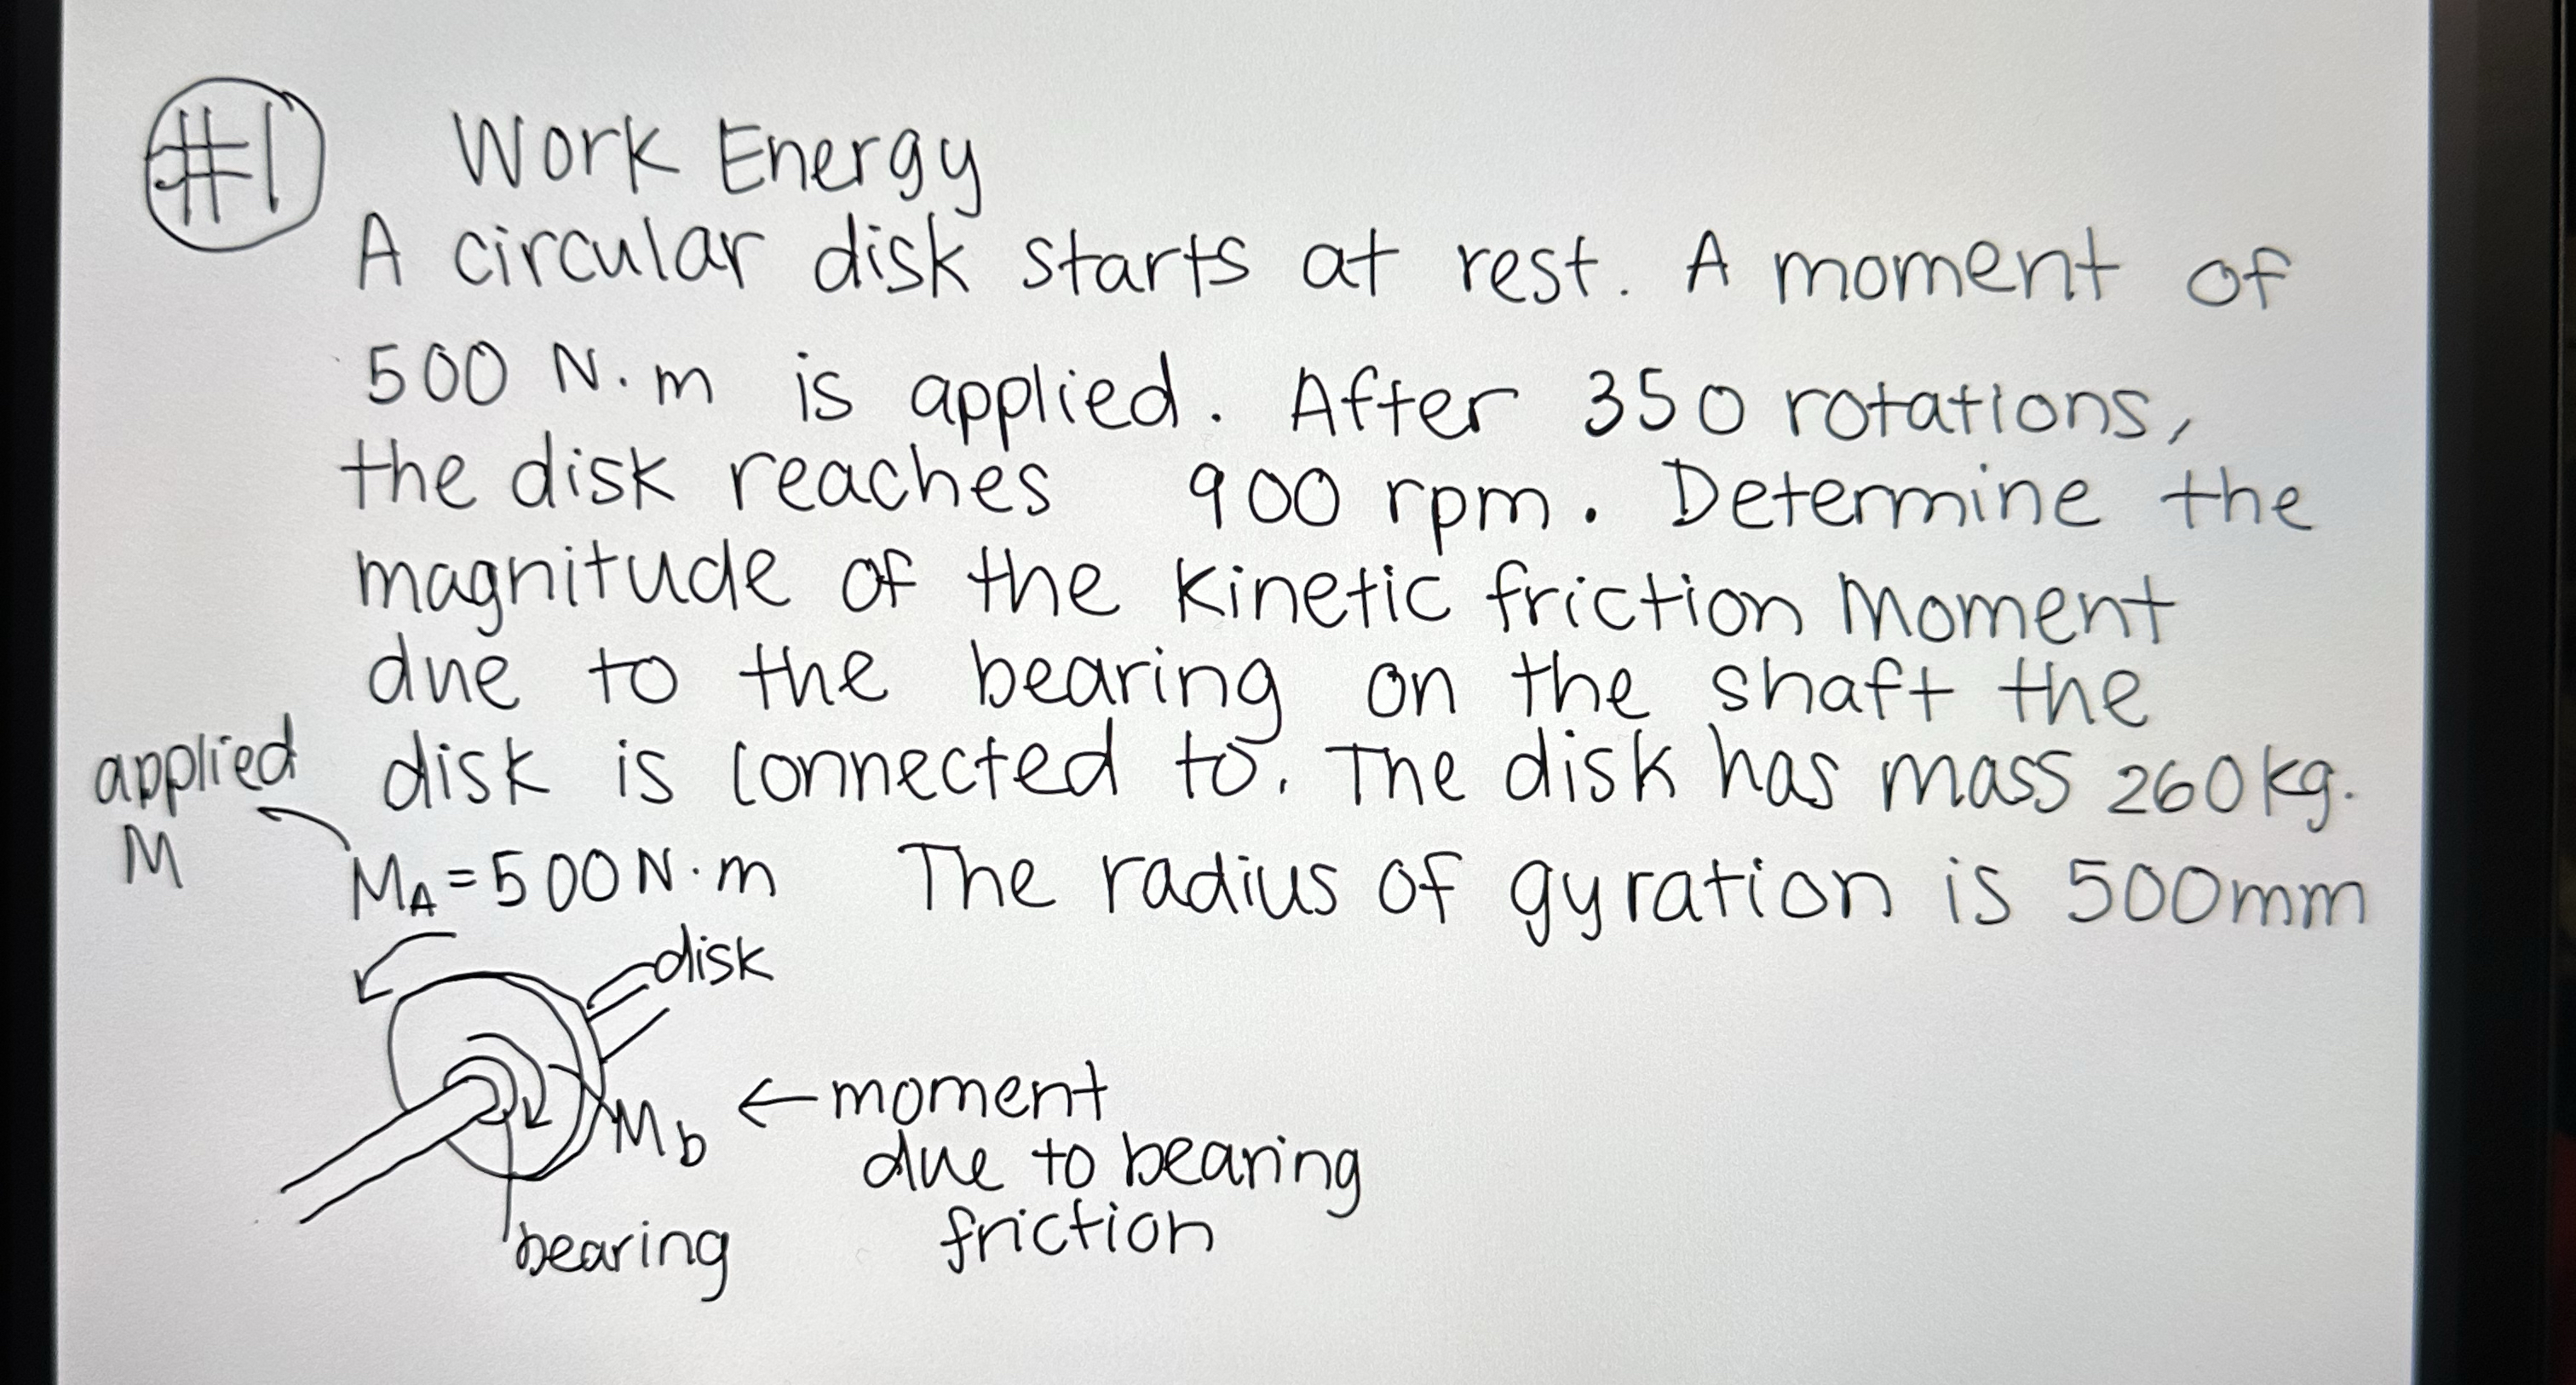 #1 Work Energy
A circular disk starts at rest. A moment of
500 N·m is applied. After 350 rotations,
the disk reaches 900 rpm. Determine the
magnitude of the kinetic friction Moment
due to the bearing on the shaft the
disk is connected to. The disk has mass 260kg.
applied
M
MA = 500 N·m The radius of gyration is 500mm
disk
Mb ← moment
due to bearing
friction
bearing